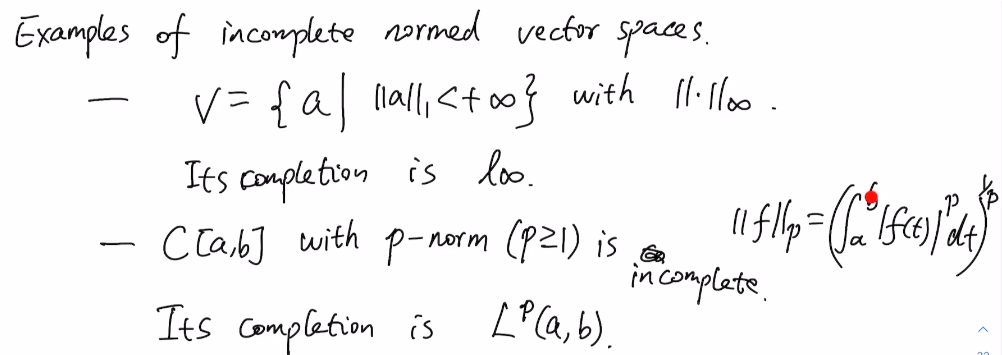 Examples of incomplete normed vector spaces.
— V = { a | ||a||₁ < +∞} with ||·||∞ .
Its completion is l∞.
— C[a,b] with p-norm (p≥1) is incomplete.
||f||p = (∫ₐᵇ |f(t)|ᵖ dt)^{1/p}
Its completion is Lᵖ(a,b).